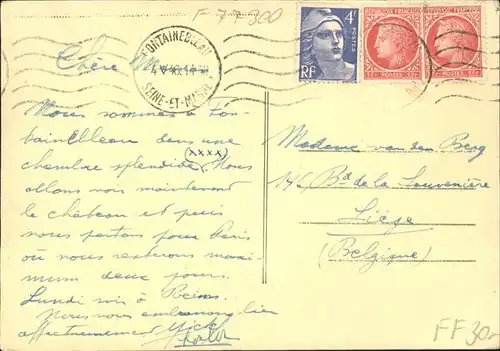 F 77300
FONTAINEBLEAU
SEINE-ET-MARNE
4F
POSTES
RF
RÉPUBLIQUE FRANÇAISE
1F POSTES 1F
1F POSTES 1F
Chère
Nous sommes à Fon-
tainebleau dans une
chambre splendide (xxxx). Nous
allons voir maintenant
le château et puis
nous partons pour Paris
où nous resterons maxi-
mum deux jours.
Lundi soir à Reims.
Nous vous embrassons bien
affectueusement
Madame van den Berg
145 Bd de la Sauvenière
Liège
(Belgique)
FF30.-